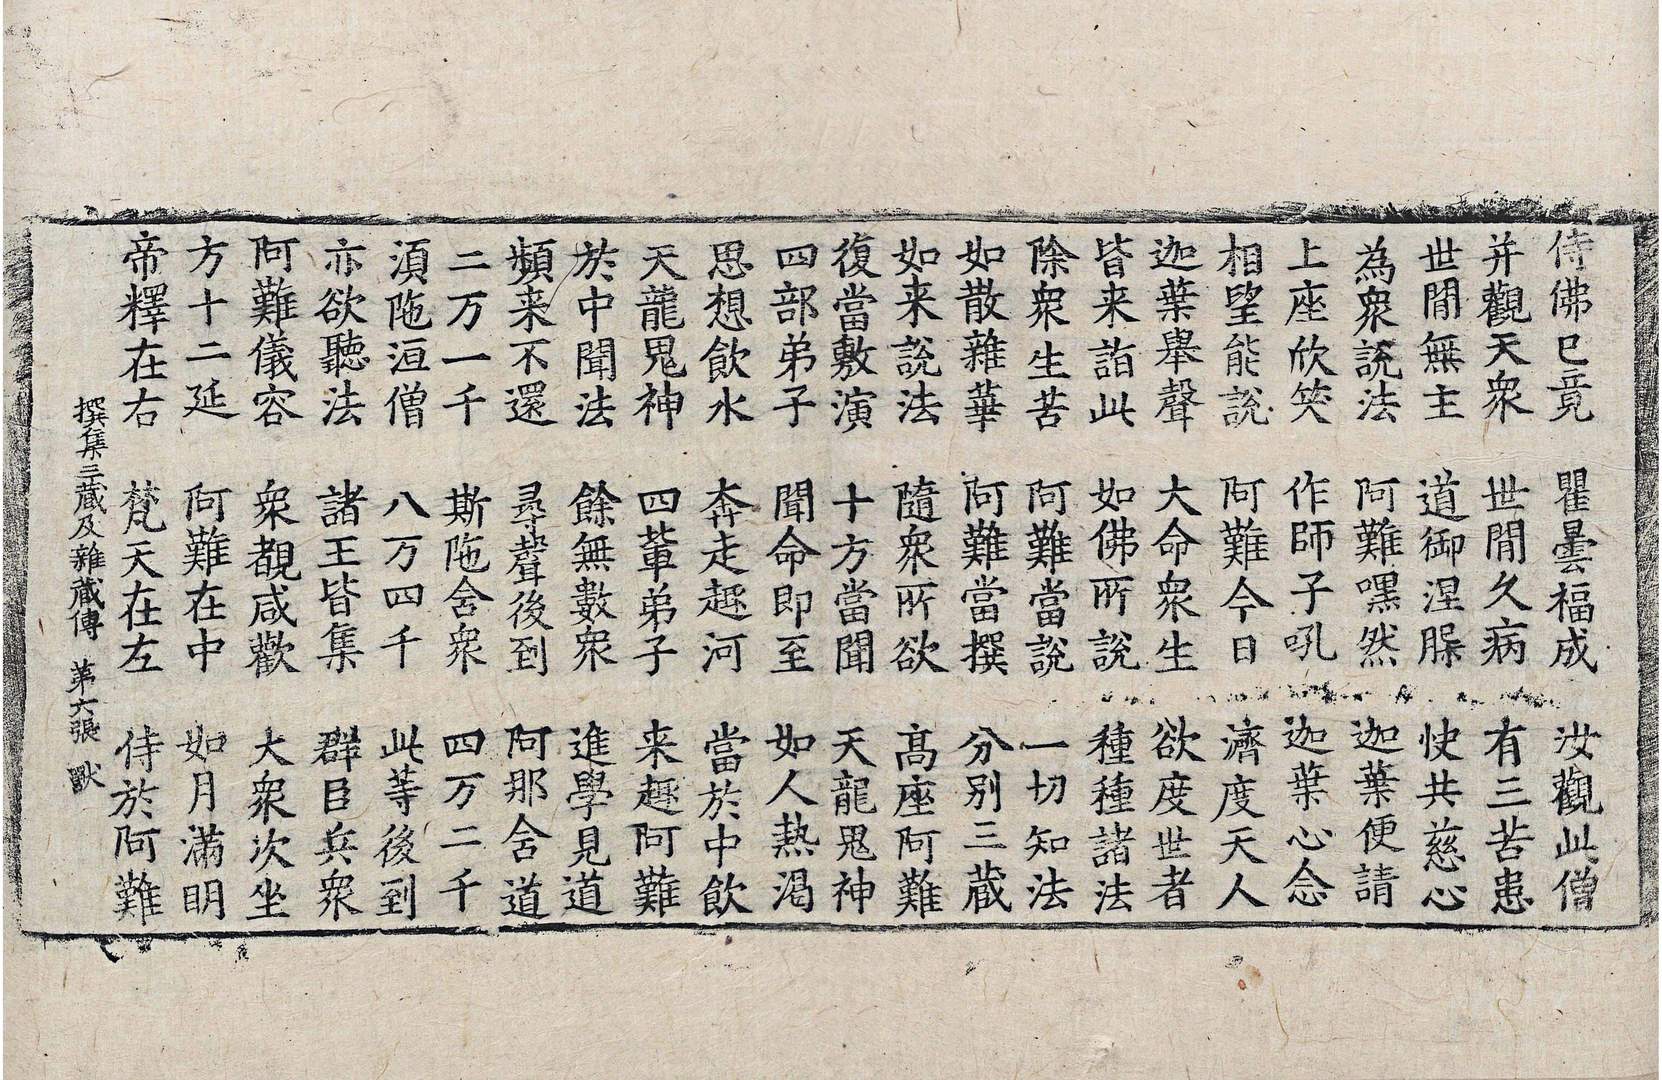 侍佛已竟 瞿曇福成 汝觀此僧
并觀天衆 世間久病 有三苦患
世間無主 道御涅脲 快共慈心
為衆説法 阿難嘿然 迦葉便請
上座欣笑 作師子吼 迦葉心念
相望能説 阿難今日 濟度天人
迦葉舉聲 大命衆生 欲度世者
皆来詣此 如佛所説 種種諸法
除衆生苦 阿難當説 一切知法
如散雜華 阿難當撰 分別三蔵
如来説法 隨衆所欲 髙座阿難
復當敷演 十方當聞 天龍鬼神
四部弟子 聞命即至 如人熱渴
思想飲水 奔走趣河 當於中飲
天龍鬼神 四輩弟子 来趣阿難
於中聞法 餘無數衆 進學見道
頻来不還 尋聲後到 阿那含道
二万一千 斯陁含衆 四万二千
湏陁洹僧 八万四千 此等後到
亦欲聽法 諸王皆集 群臣兵衆
阿難儀容 衆覩咸歡 大衆次坐
方十二延 阿難在中 如月滿明
帝釋在右 梵天在左 侍於阿難
撰集三蔵及雜蔵傳 第六張 獸